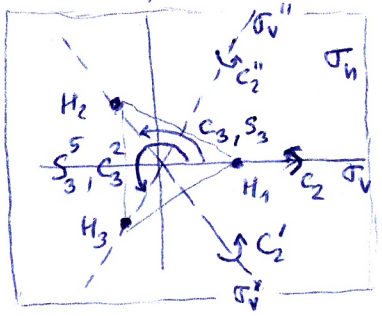 σᵥ''
σₕ
C₂''
H₂
C₃, S₃
S₃⁵, C₃²
H₁
C₂
σᵥ
H₃
C₂'
σᵥ'